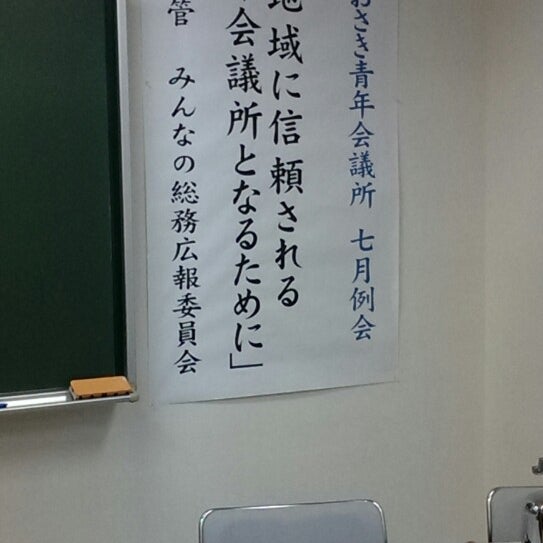 おさき青年会議所 七月例会
地域に信頼される
会議所となるために」
管 みんなの総務広報委員会